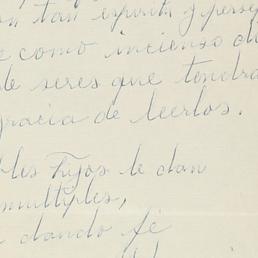 tan espíritu y
e como incienso
de seres que tendrá
gracia de leerlos.
les hijos le dan
multiples,
dando fé